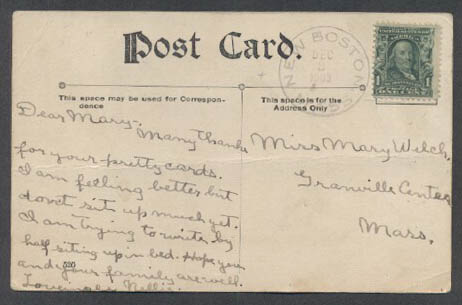 Post Card.
NEW BOSTON
DEC
MASS
1
This space may be used for Correspon-
dence
This space is for the
Address Only
Dear Mary-.
Many thanks
for your pretty cards.
I am feeling better but
dont sit up much yet.
I am trying to write by
half sitting up in bed. Hope you
and your family are well.
Nellie
520
Miss Mary Welch.
Granville Center
Mass.